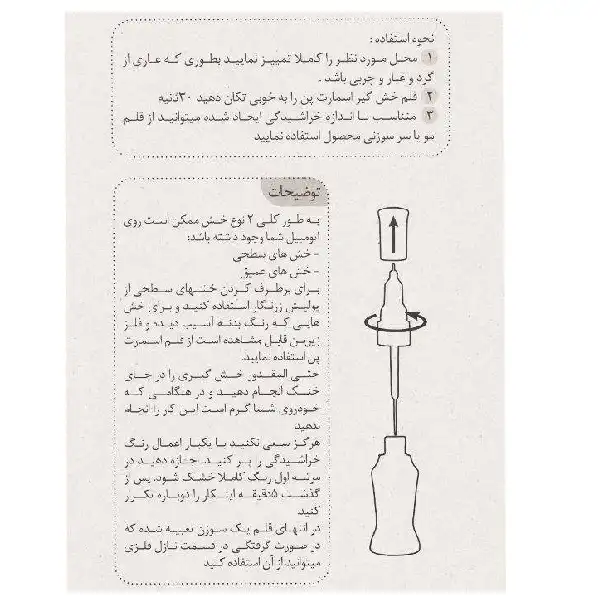 نحوه استفاده :
۱ محل مورد نظر را کاملا تمییز نمایید بطوری که عاری از
گرد و غبار و چربی باشد .
۲ قلم خش گیر اسمارت پن را به خوبی تکان دهید ۳۰ثانیه
۳ متناسب با اندازه خراشیدگی ایجاد شده میتوانید از قلم
مو یا سر سوزنی محصول استفاده نمایید
توضیحات
به طور کلی ۲ نوع خش ممکن است روی
اتومبیل شما وجود داشته باشد:
- خش های سطحی
- خش های عمیق
برای برطرف کردن خشهای سطحی از
پولیش زرنگار استفاده کنید و برای خش
هایی که رنگ بدنه آسیب دیده و فلز
زیرین قابل مشاهده است از قلم اسمارت
پن استفاده نمایید.
حتی المقدور خش گیری را در جای
خنک انجام دهید و در هنگامی که
خودروی شما گرم است این کار را انجام
ندهید.
هرگز سعی نکنید با یکبار اعمال رنگ
خراشیدگی را پر کنید. اجازه دهید در
مرتبه اول رنگ کاملا خشک شود، پس از
گذشت ۱۵دقیقه اینکار را دوباره تکرار
کنید.
در انتهای قلم یک سوزن تعبیه شده که
در صورت گرفتگی در قسمت نازل فلزی
میتوانید از آن استفاده کنید